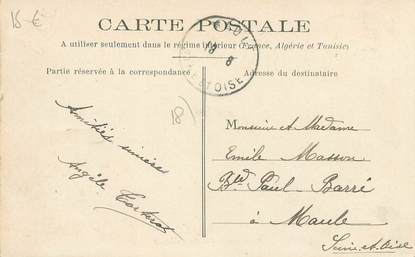 15 €
CARTE POSTALE
A utiliser seulement dans le régime intérieur (France, Algérie et Tunisie)
Partie réservée à la correspondance
Adresse du destinataire
18
8
ET OISE
18
Amitiés sincères
Angèle
Monsieur et Madame
Emile Masson
Bld Paul-Barré
à Maule
Seine et Oise